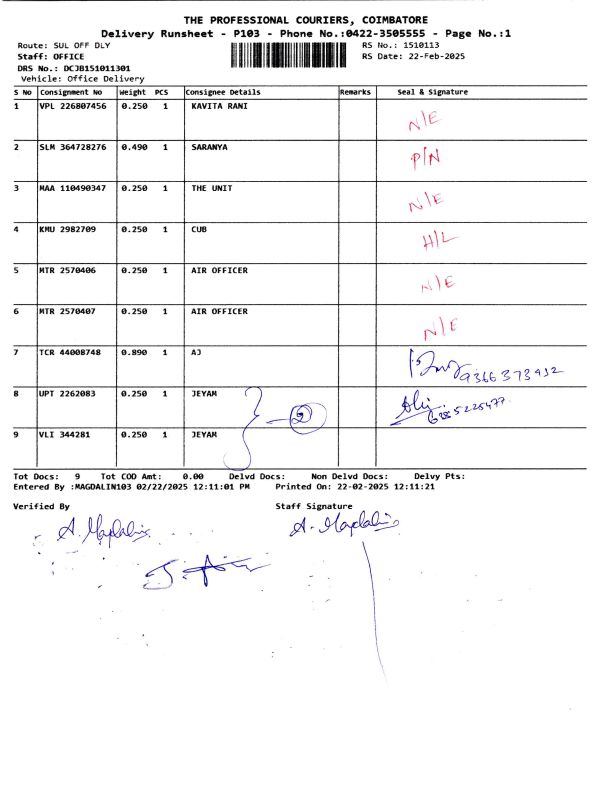 THE PROFESSIONAL COURIERS, COIMBATORE
Delivery Runsheet - P103 - Phone No.:0422-3505555 - Page No.:1
Route: SUL OFF DLY RS No.: 1510113
Staff: OFFICE RS Date: 22-Feb-2025
DRS No.: DCJB151011301
Vehicle: Office Delivery
S No Consignment No Weight PCS Consignee Details Remarks Seal & Signature
1 VPL 226807456 0.250 1 KAVITA RANI N/E
2 SLM 364728276 0.490 1 SARANYA P/N
3 MAA 110490347 0.250 1 THE UNIT N/E
4 KMU 2982709 0.250 1 CUB H/L
5 MTR 2570406 0.250 1 AIR OFFICER N/E
6 MTR 2570407 0.250 1 AIR OFFICER N/E
7 TCR 44008748 0.890 1 AJ
8 UPT 2262083 0.250 1 JEYAM
2
9 VLI 344281 0.250 1 JEYAM
Tot Docs: 9 Tot COD Amt: 0.00 Delvd Docs: Non Delvd Docs: Delvy Pts:
Entered By :MAGDALIN103 02/22/2025 12:11:01 PM Printed On: 22-02-2025 12:11:21
Verified By Staff Signature